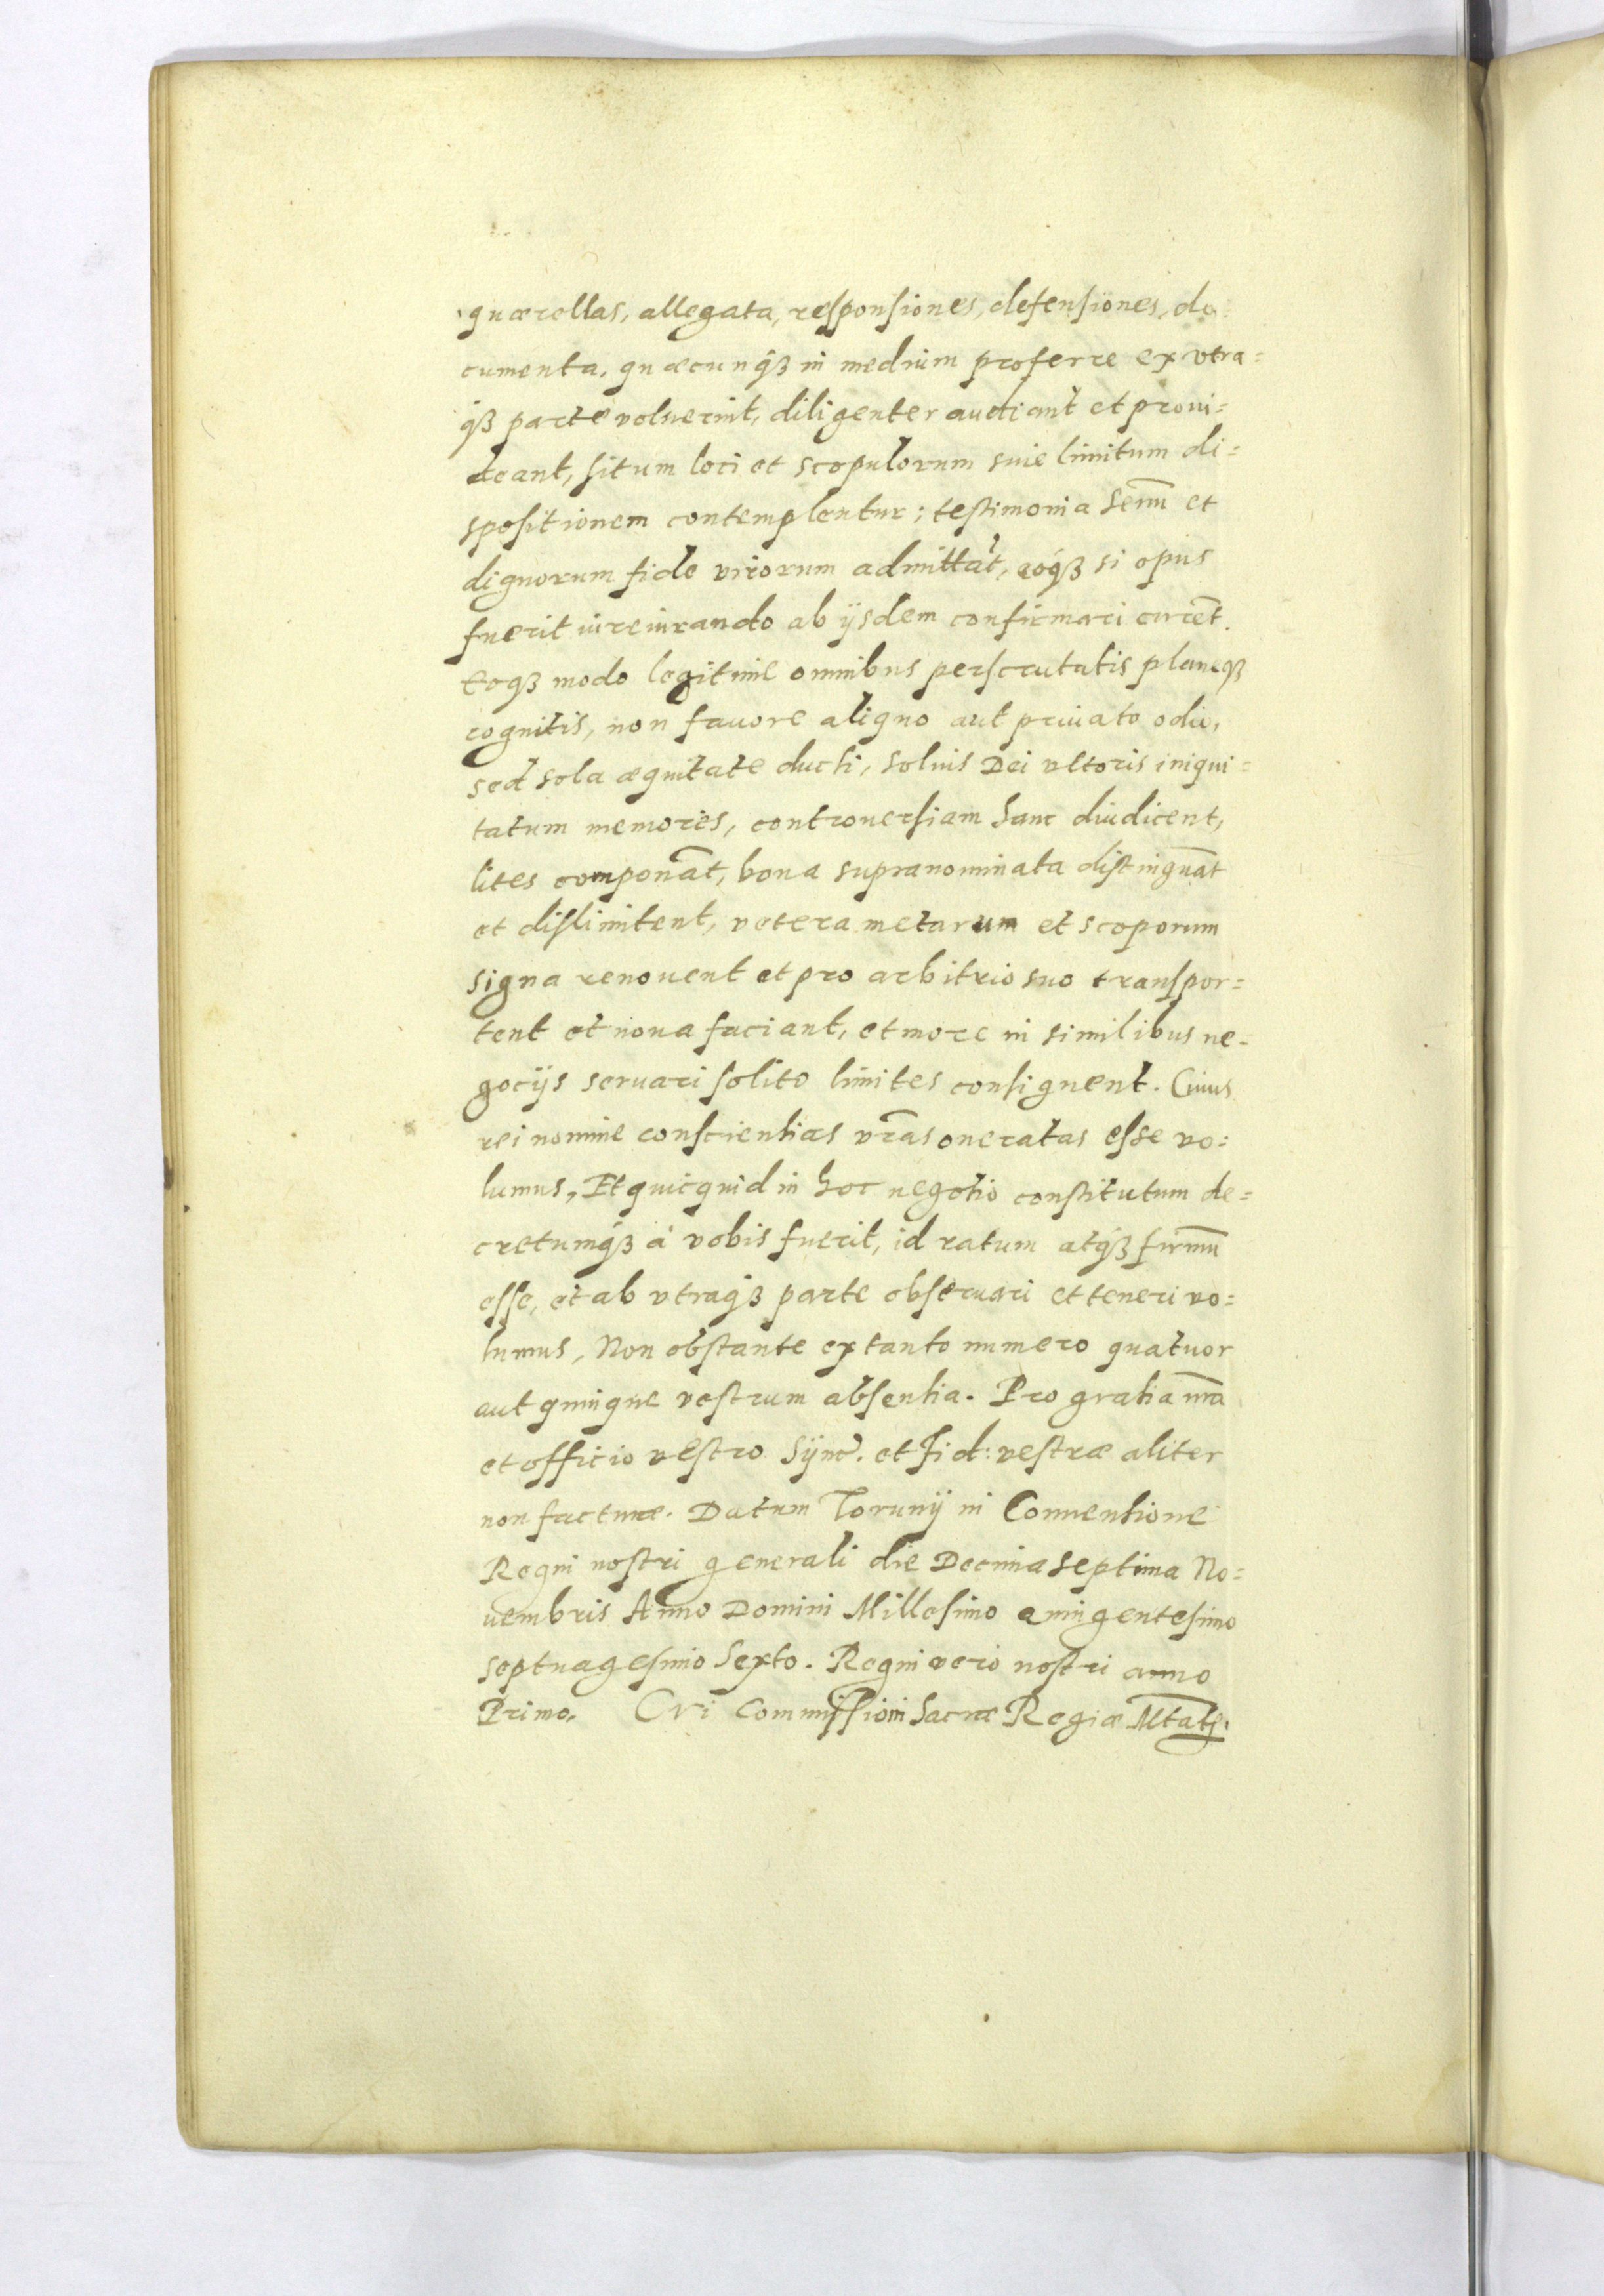 quærellas, allegata, responsiones, defensiones, do=
cumenta, quæcunqꝫ in medium proferre ex vtra=
qꝫ parte voluerint, diligenter audiant et proui=
deant, situm loci et scopulorum siue limitum di=
spositionem contemplentur; testimonia senũ et
dignorum fide virorum admittãt, eóqꝫ si opus
fuerit iureiurando ab ijsdem confirmari curẽt.
Eoqꝫ modo legitime omnibus perscrutatis planeqꝫ
cognitis, non fauore aliquo aut priuato odio,
sed sola æquitate ducti, solius Dei vltoris iniqui=
tatum memores, controuersiam hanc diudicent,
lites componãt, bona supranominata distinguãt
et dislimitent, vetera metarum et scoporum
signa renouent et pro arbitrio suo transpor=
tent et noua faciant, et more in similibus ne=
gocijs seruari solito limites consignent. Cuius
rei nomine conscientias vr̃as oneratas esse vo=
lumus, Et quicquid in hoc negotio constitutum de=
cretumqꝫ à vobis fuerit, id ratum atqꝫ firmũ
esse, et ab vtraqꝫ parte obseruari et teneri vo=
lumus, Non obstante ex tanto numero quatuor
aut quinque vestrum absentia. Pro gratia nr̃a
et officio vestro Sync. et Fid: vestræ aliter
non facturæ. Datum Torunij in Conuentione
Regni nostri generali die Decima septima No=
uembris Anno Domini Millesimo quingentesimo
septuagesimo Sexto. Regni vero nostri anno
Primo. Cui Commissioni Sacræ Regiæ Mtatis.